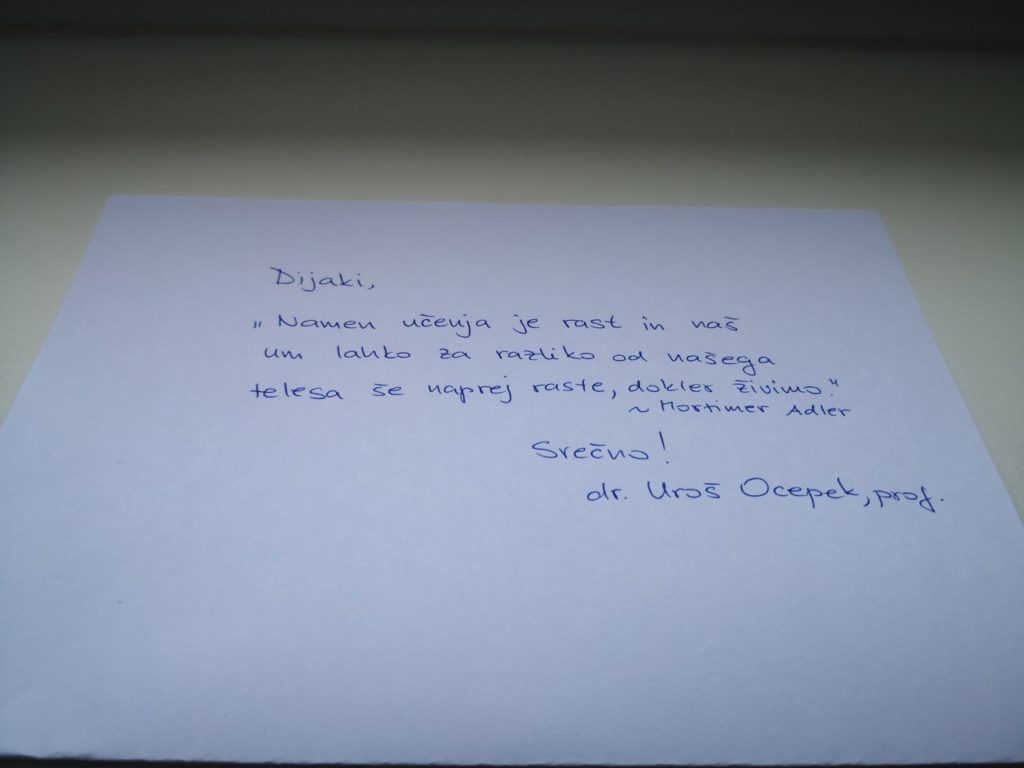 Dijaki,
„Namen učenja je rast in naš
um lahko za razliko od našega
telesa še naprej raste, dokler živimo."
~ Mortimer Adler
Srečno!
dr. Uroš Ocepek, prof.